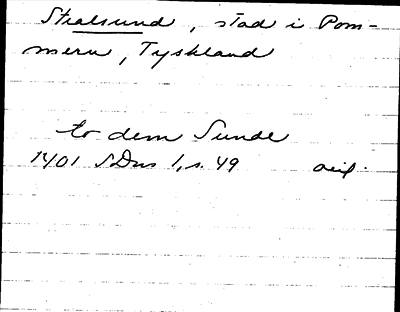 Stralsund, stad i Pom-
mern, Tyskland
to dem Sunde
1401 SDns 1, s. 49